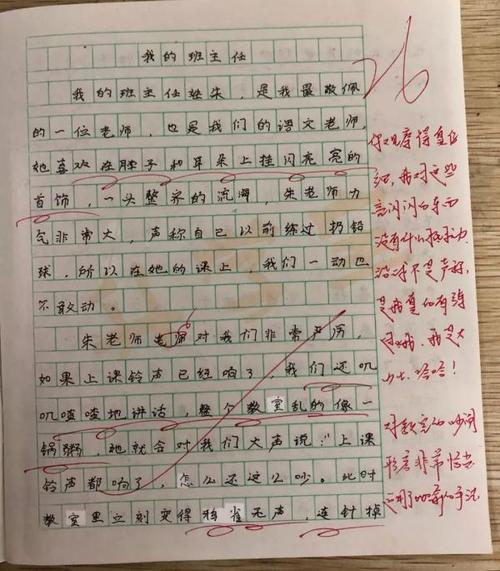 我的班主任
26
我的班主任姓朱，是我最敬佩
的一位老师，也是我们的语文老师，
她喜欢在脖子和耳朵上挂闪亮亮的
首饰，一头整齐的流海，朱老师力
气非常大，声称自己以前练过扔铅
球，所以在她的课上，我们一动也
不敢动。
朱老师老师对我们非常严厉，
如果上课铃声已经响了，我们还叽
叽喳喳地讲话，整个教室乱的像一
锅粥，她就会对我们大声说："上课
铃声都响了，怎么还这么吵。此时
教室里立刻变得鸦雀无声，连针掉
你观察得真仔
细，我对这些
亮闪闪的东西
没有什么抵抗力
不是声称，
是我真的有练
过，我是大
力士，哈哈！
对教室的吵闹
形容非常恰当
运用了比喻的手法